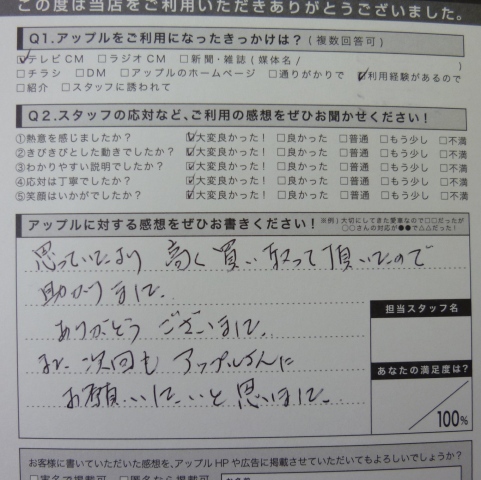 この度は当店をご利用いただきありがとうございました。
Q1.アップルをご利用になったきっかけは?(複数回答可)
☑テレビCM □ラジオCM □新聞・雑誌(媒体名/ )
□チラシ □DM □アップルのホームページ □通りがかりで ☑利用経験があるので
□紹介 □スタッフに誘われて
Q2.スタッフの応対など、ご利用の感想をぜひお聞かせください!
①熱意を感じましたか? ☑大変良かった! □良かった □普通 □もう少し □不満
②きびきびとした動きでしたか? ☑大変良かった! □良かった □普通 □もう少し □不満
③わかりやすい説明でしたか? ☑大変良かった! □良かった □普通 □もう少し □不満
④応対は丁寧でしたか? ☑大変良かった! □良かった □普通 □もう少し □不満
⑤笑顔はいかがでしたか? ☑大変良かった! □良かった □普通 □もう少し □不満
アップルに対する感想をぜひお書きください!
※例)大切にしてきた愛車なので□□だったが
□□さんの対応が●●で△△だった!
思っていたより 高く買い取って頂いたので
助かりました。
ありがとうございました。
また、次回も アップルさんに
お願いしたいと思いました。
担当スタッフ名
あなたの満足度は?
/100%
お客様に書いていただいた感想を、アップルHPや広告に掲載させていただいてもよろしいでしょうか?
□実名で掲載可 □匿名なら掲載可